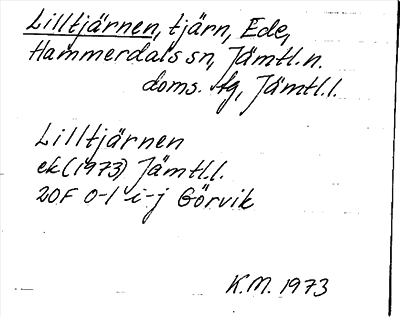 Lilltjärnen, tjärn, Ede,
Hammerdals sn, Jämtl.n.
doms. tg, Jämtl.l.
Lilltjärnen
ek (1973) Jämtl.l.
20F 0-1 i-j Görvik
K.M. 1973